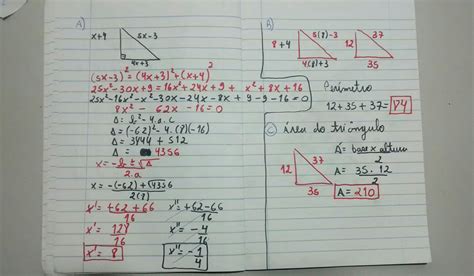 A)
x+4
5x-3
4x+3
(5x-3)²=(4x+3)²+(x+4)²
25x²-30x+9=16x²+24x+9+x²+8x+16
25x²-16x²-x²-30x-24x-8x+9-9-16=0
8x²-62x-16=0
Δ=b²-4.a.c
Δ=(-62)²-4.(8)(-16)
Δ=3444+512
Δ=4356
x=-b±√Δ
2.a
x=-(-62)±√4356
2(8)
x'=+62+66
16
x''=+62-66
16
x'=128
16
x''=-4
16
x'=8
x''=-1
4
B)
8+4
5(8)-3
4(8)+3
12
37
35
Perímetro
12+35+37=84
C) Área do triângulo
12
37
35
A=base x altura
2
A=35.12
2
A=210